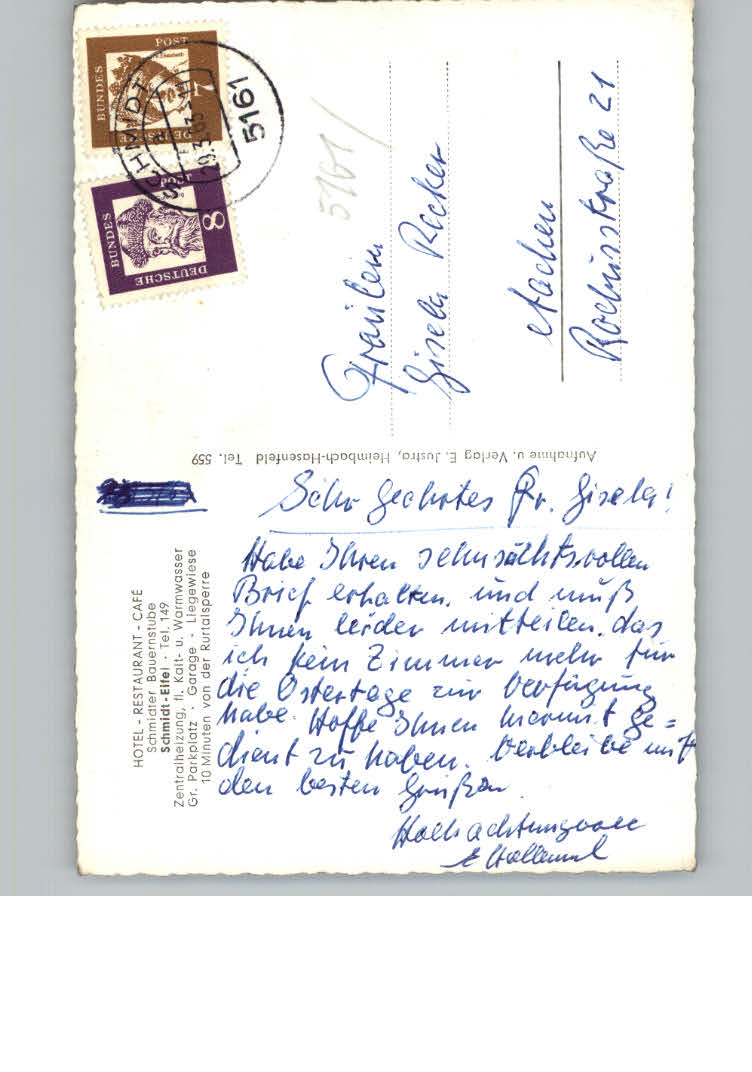 HOTEL - RESTAURANT - CAFÉ
Schmidter Bauernstube
Schmidt-Eifel · Tel. 149
Zentralheizung, fl. Kalt- u. Warmwasser
Gr. Parkplatz · Garage · Liegewiese
10 Minuten von der Rurtalsperre
Sehr geehrtes Frl. Gisela!
Habe Ihren sehnsüchtsvollen
Brief erhalten, und muß
Ihnen leider mitteilen, das
ich kein Zimmer mehr für
die Ostertage zur Verfügung
habe. Hoffe Ihnen hiermit ge=
dient zu haben. Verbleibe mit
den besten Grüßen
Hochachtungsvoll
Aufnahme u. Verlag E. Justra, Heimbach-Hasenfeld Tel. 559
DEUTSCHE
BUNDES
POST
7
DEUTSCHE
BUNDES
POST
8
SCHMIDT
29.3.63
5161
5161/
Fräulein
Gisela Recker
Aachen
Rochusstraße 21